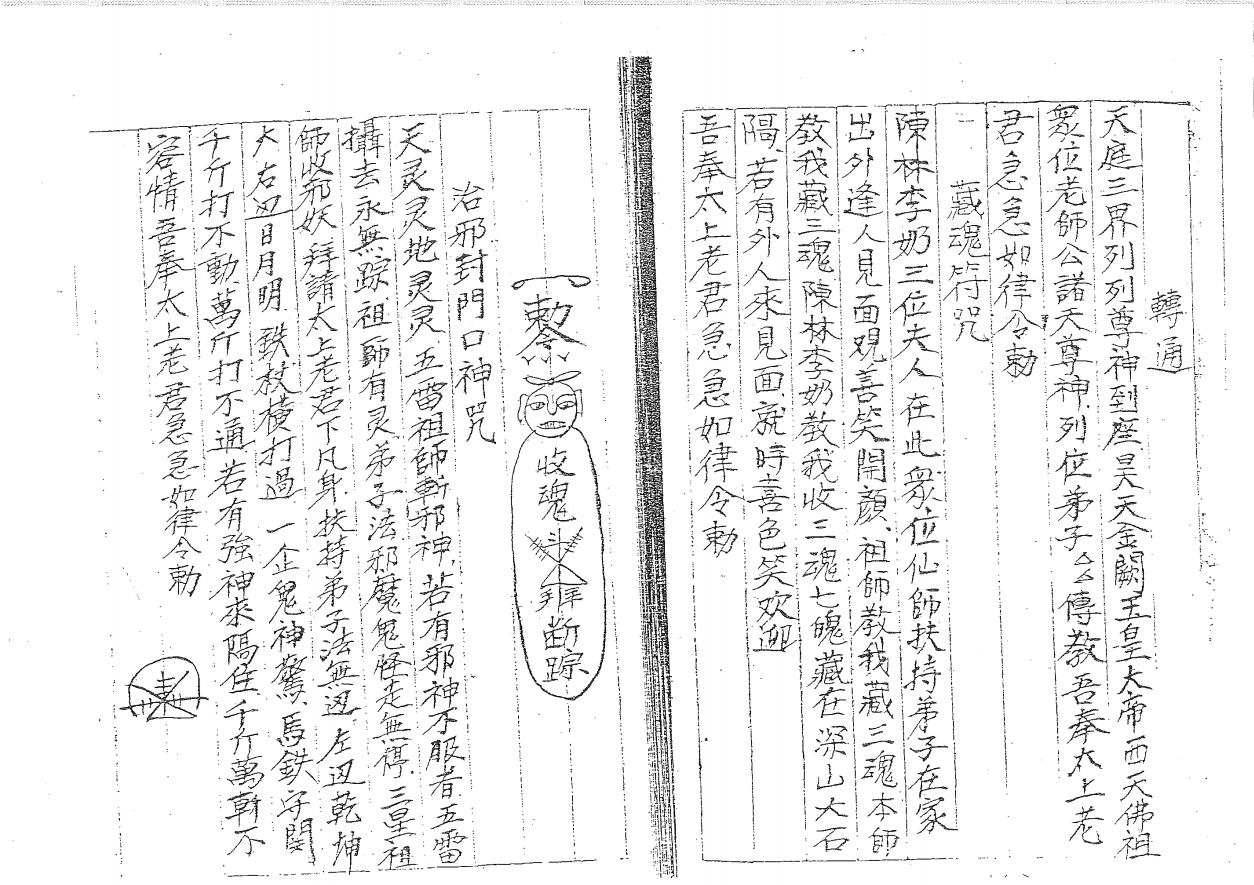 轉通
天庭三界列列尊神到座昊天金闕玉皇大帝西天佛祖
衆位老師公諸天尊神列位弟子厶厶傳教吾奉太上老
君急急如律令勅
藏魂符咒
陳林李奶三位夫人在此衆位仙師扶持弟子在家
出外逢人見面观善笑開顔、祖師教我藏三魂本師
教我藏三魂陳林李奶教我收三魂七魄藏在深山大石
隔、若有外人來見面就時喜色笑欢迎
吾奉太上老君急急如律令勅
勅令
收魂 斷踪
治邪封門口神咒
天灵灵地灵灵、五雷祖師斬邪神、若有邪神不服者五雷
攝去永無踪祖師有灵弟子法邪魔鬼怪走無停、三皇祖
師收邪妖拜請太上老君下凡身扶持弟子法無边左边乾坤
大右边日月明鉄杖橫打過一企鬼神驚、馬鉄守関
千斤打不動萬斤打不通若有強神來隔住千斤萬斬不
容情吾奉太上老君急急如律令勅